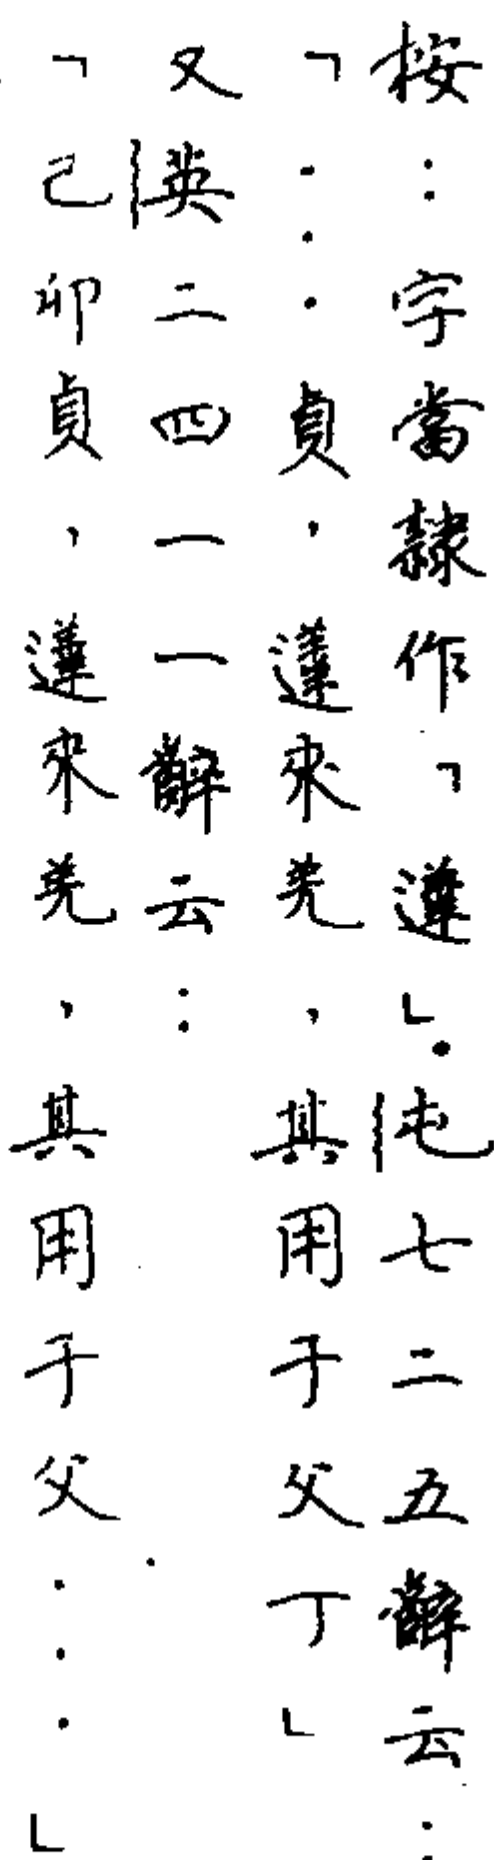 按：字當隸作「𨗥」。屯七二五辭云：
「…貞，𨗥來羌，其用于父丁」
又英二四一一辭云：
「己卯貞，𨗥來羌，其用于父…」